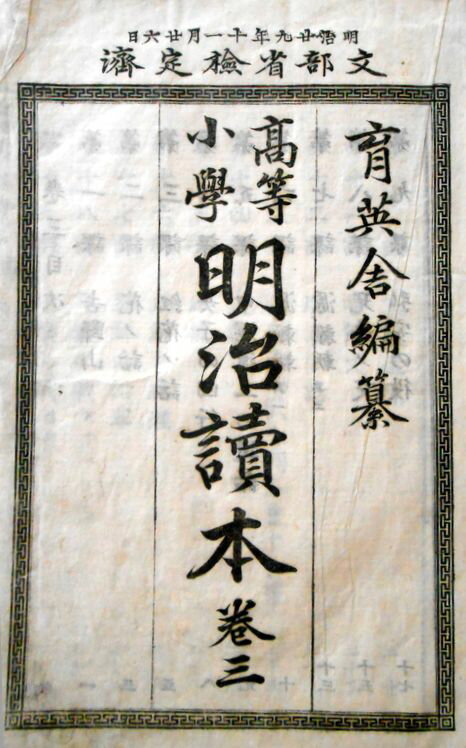 明治廿九年十一月廿六日
文部省檢定濟
育英舍編纂
高等
小學
明治讀本 卷三